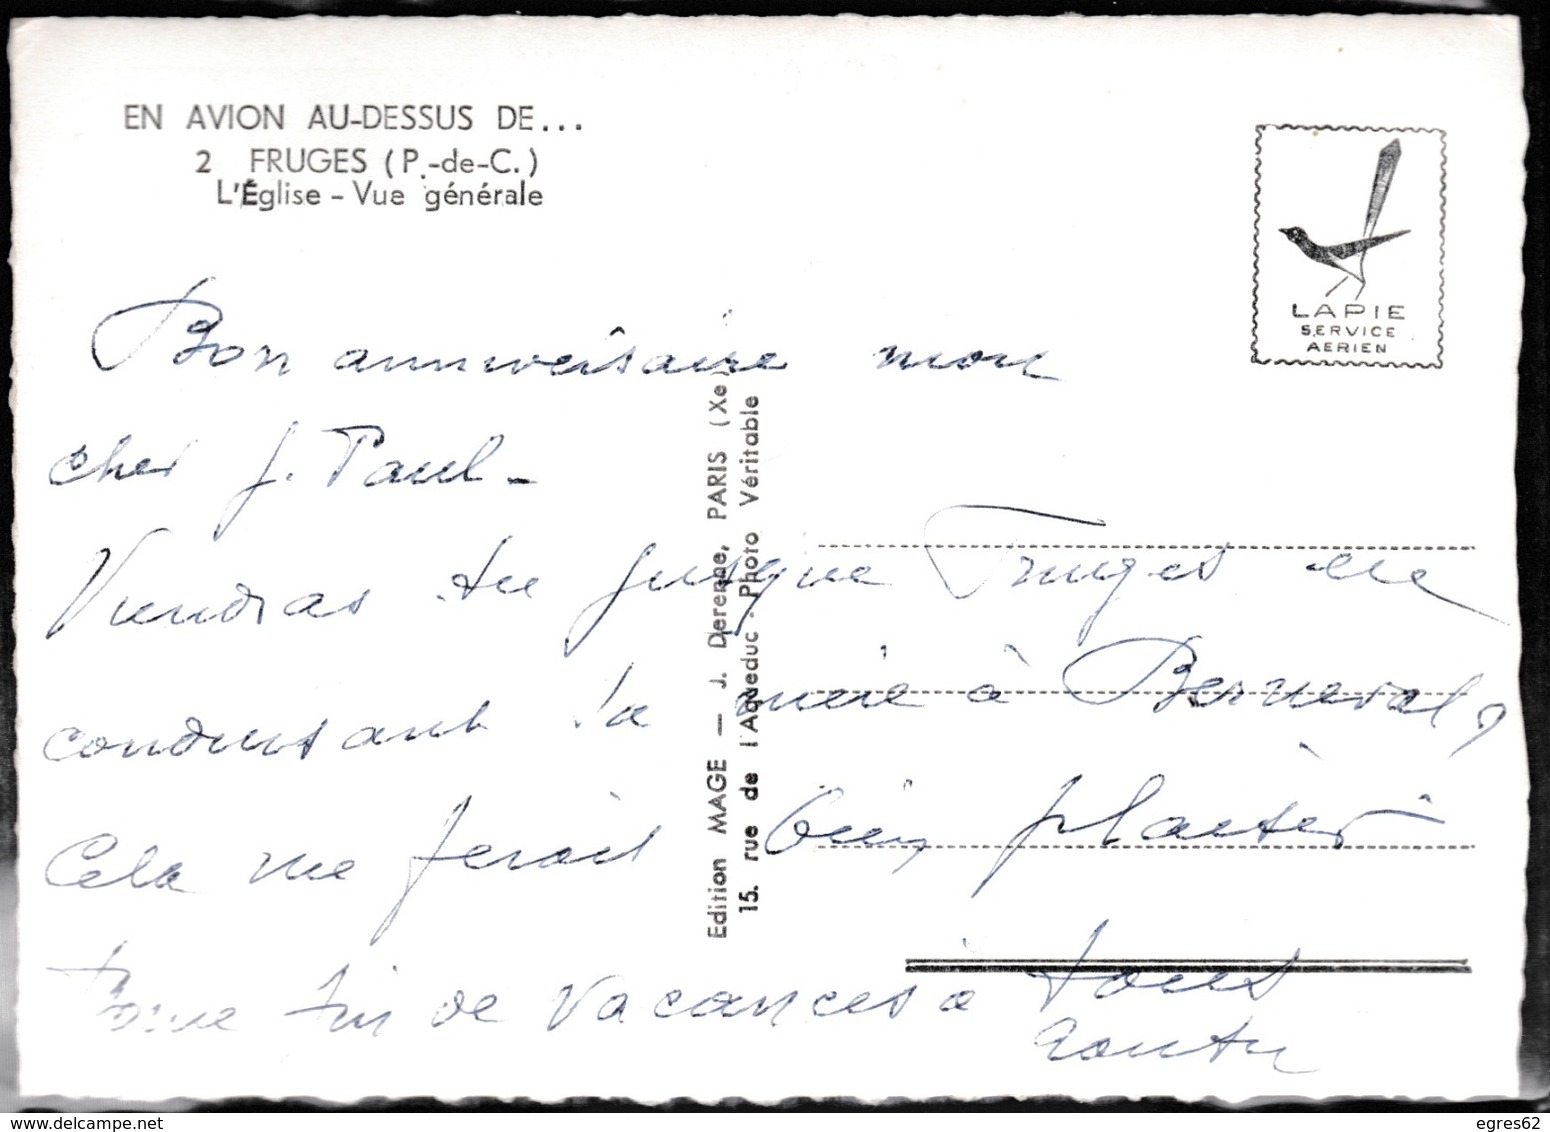 EN AVION AU-DESSUS DE...
2 FRUGES (P.-de-C.)
L'Église - Vue générale
LAPIE
SERVICE
AERIEN
Bon anniversaire mon
cher J. Paul -
Viendras tu jusque Fruges en
conduisant ta mère à Berneval ?
Cela me ferait bien plaisir
Bonne fin de vacances à tous
Edition MAGE — J. Derenne, PARIS (Xe
15. rue de l'Aqueduc - Photo Véritable
delcampe.net
egres62